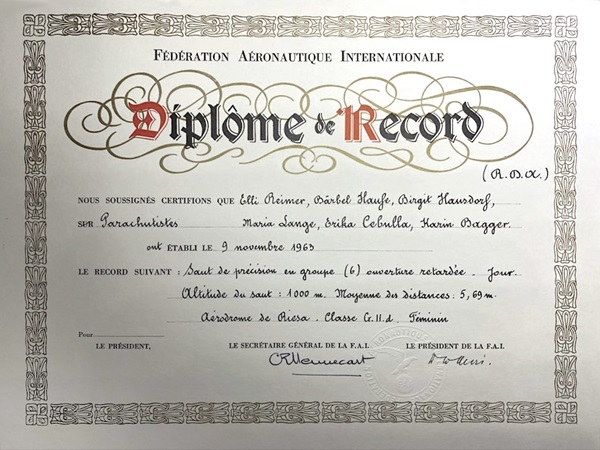 FÉDÉRATION AÉRONAUTIQUE INTERNATIONALE
Diplôme de Record
(R.D.A.)
NOUS SOUSSIGNÉS CERTIFIONS QUE Elli Reimer, Bärbel Haufe, Birgit Hausdorf,
SPR Parachutistes Maria Lange, Erika Cebulla, Karin Bagger.
ont ÉTABLI LE 9 novembre 1963
LE RECORD SUIVANT : Saut de précision en groupe (6) ouverture retardée - Jour
Altitude du saut : 1000 m. Moyenne des distances : 5,69 m.
Aérodrome de Riesa - Classe Gr. II.d Féminin
Pour
LE PRÉSIDENT, LE SECRÉTAIRE GÉNÉRAL DE LA F.A.I. LE PRÉSIDENT DE LA F.A.I.